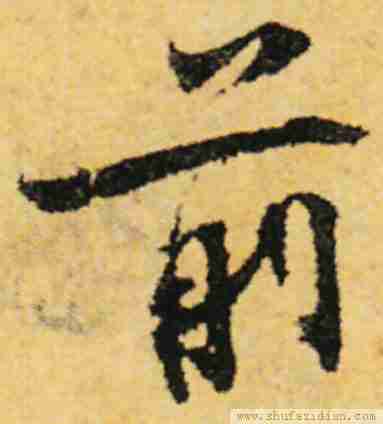 前
www.shufazidian.com